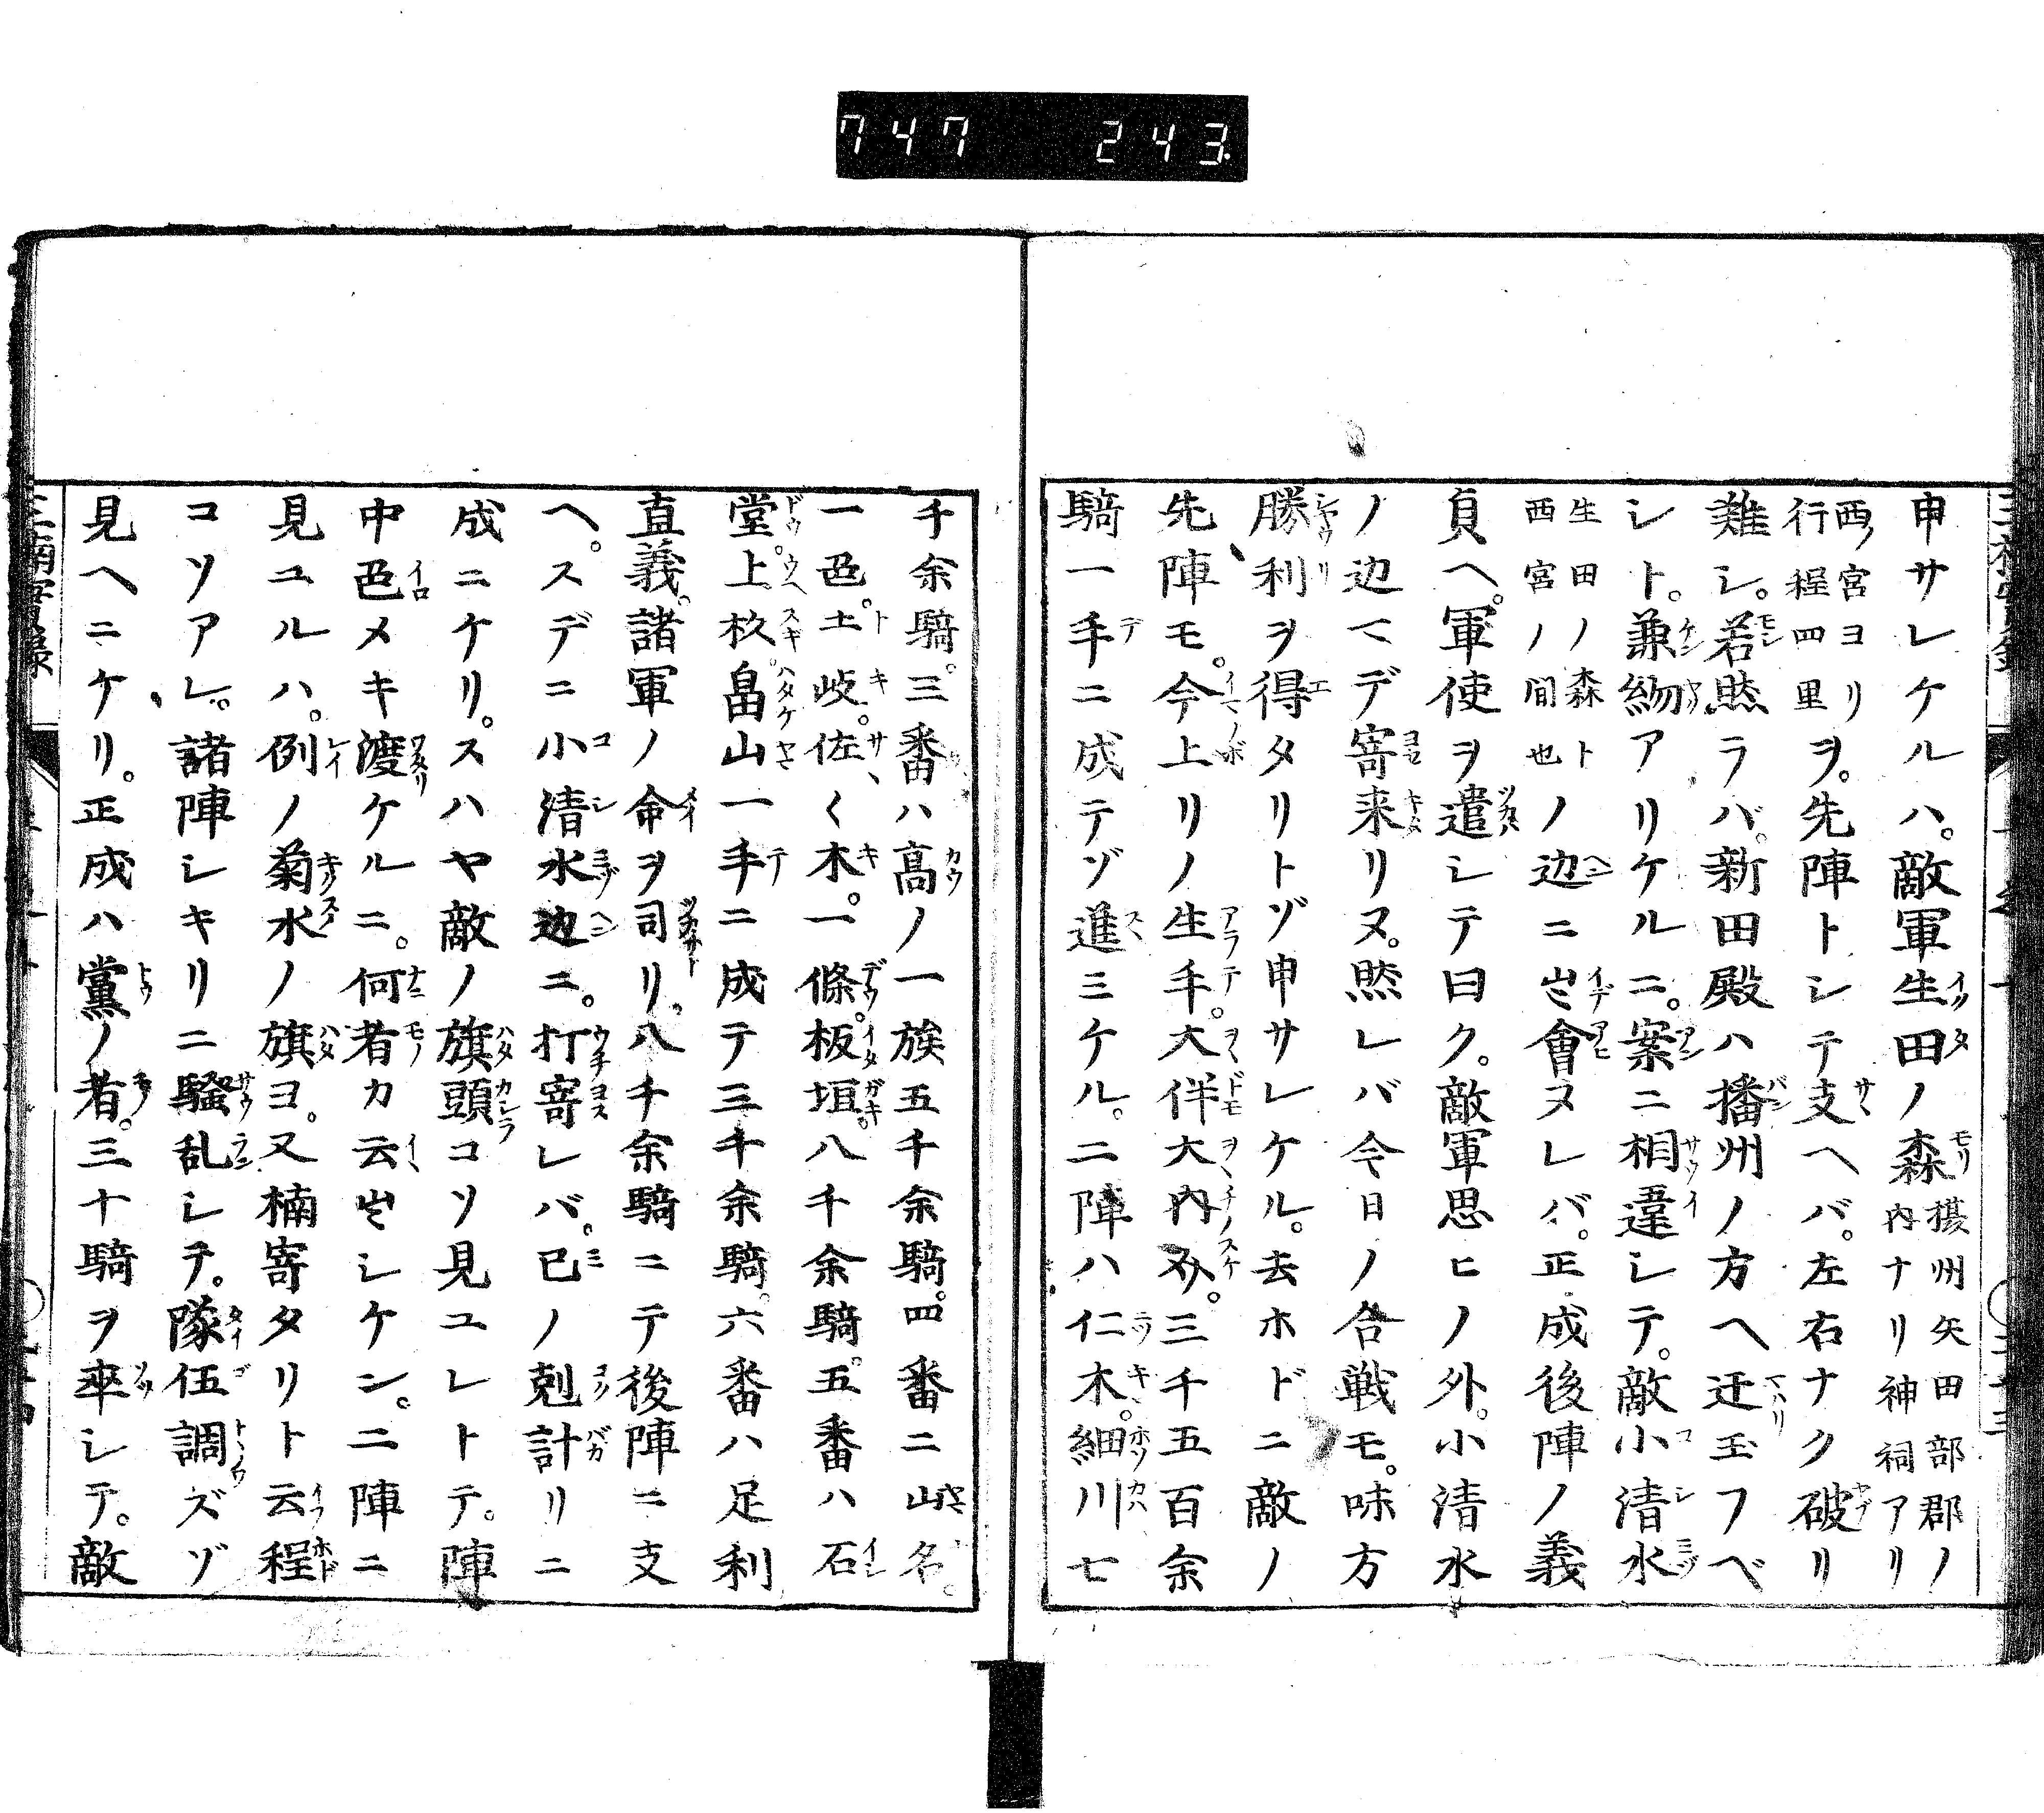 747 243
申サレケルハ。敵軍生田ノ森摂州矢田部郡ノ内ナリ神祠アリ
西ノ宮ヨリ行程四里ヲ。先陣トシテ支ヘバ。左右ナク破リ
難シ。若然ラバ。新田殿ハ播州ノ方ヘ迂玉フベ
シト。兼約アリケルニ。案ニ相違シテ。敵小清水
生田ノ森ト西宮ノ間也ノ辺ニ出會ヌレバ。正成後陣ノ義
貞ヘ。軍使ヲ遣シテ曰ク。敵軍思ヒノ外。小清水
ノ辺マデ寄来リヌ。然レバ今日ノ合戦モ。味方
勝利ヲ得タリトゾ申サレケル。去ホドニ敵ノ
先陣モ。今上リノ生手。大伴大内介。三千五百余
騎一手ニ成テゾ進ミケル。二陣ハ仁木。細川七
千余騎。三番ハ高ノ一族五千余騎。四番ニ山名。
一色。土岐。佐〻木。一條。板垣。八千余騎。五番ハ石
堂。上杦。畠山一手ニ成テ三千余騎。六番ハ足利
直義。諸軍ノ命ヲ司リ。八千余騎ニテ後陣ニ支
ヘ。スデニ小清水辺ニ。打寄レバ。已ノ剋計リニ
成ニケリ。スハヤ敵ノ旗頭コソ見ユレトテ。陣
中色メキ渡ケルニ。何者カ云出シケン。二陣ニ
見ユルハ。例ノ菊水ノ旗ヨ。又楠寄タリト云程
コソアレ。諸陣シキリニ騒乱シテ。隊伍調ズゾ
見ヘニケリ。正成ハ黨ノ者。三十騎ヲ率シテ。敵